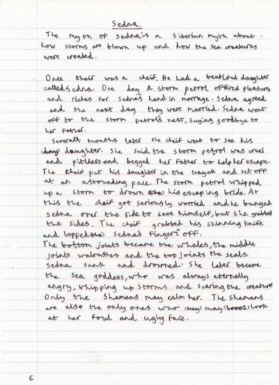 Sedna
The myth of Sedna is a Siberian myth about
how storms are blown up and how the sea creatures
were created.
Once their was a chief. He had a beatiful daughter
called Sedna. One day a storm petrel offered pleasure
and riches for Sedna's hand in marrage. Sedna agreed
and the next day they were married. Sedna went
off to the storm petrels nest, saying goodbye to
her father.
Several months later the chief went to see his
daughter. She said the storm petrel was cruel
and pittless and begged her father to help her escape.
The chief put his daughter in the kayak and set off
at an astounding pace. The storm petrel whipped
up a storm to drown his escaping bride. At
this the chief got seriously worried and he bunged
Sedna over the side to save himself, but she grabbed
the sides. The chief grabbed his skinning knife
and lopped Sednas fingers off.
The bottom joints became the whales, the middle
joints walruses and the top joints the seals.
Sedna sank and drowned. She later became
the sea goddess, who was always eternally
angry, whipping up storms and scaring the creatures
Only the Shamans may calm her. The Shamans
are also the only ones who may look
at her foul and ugly face.
6